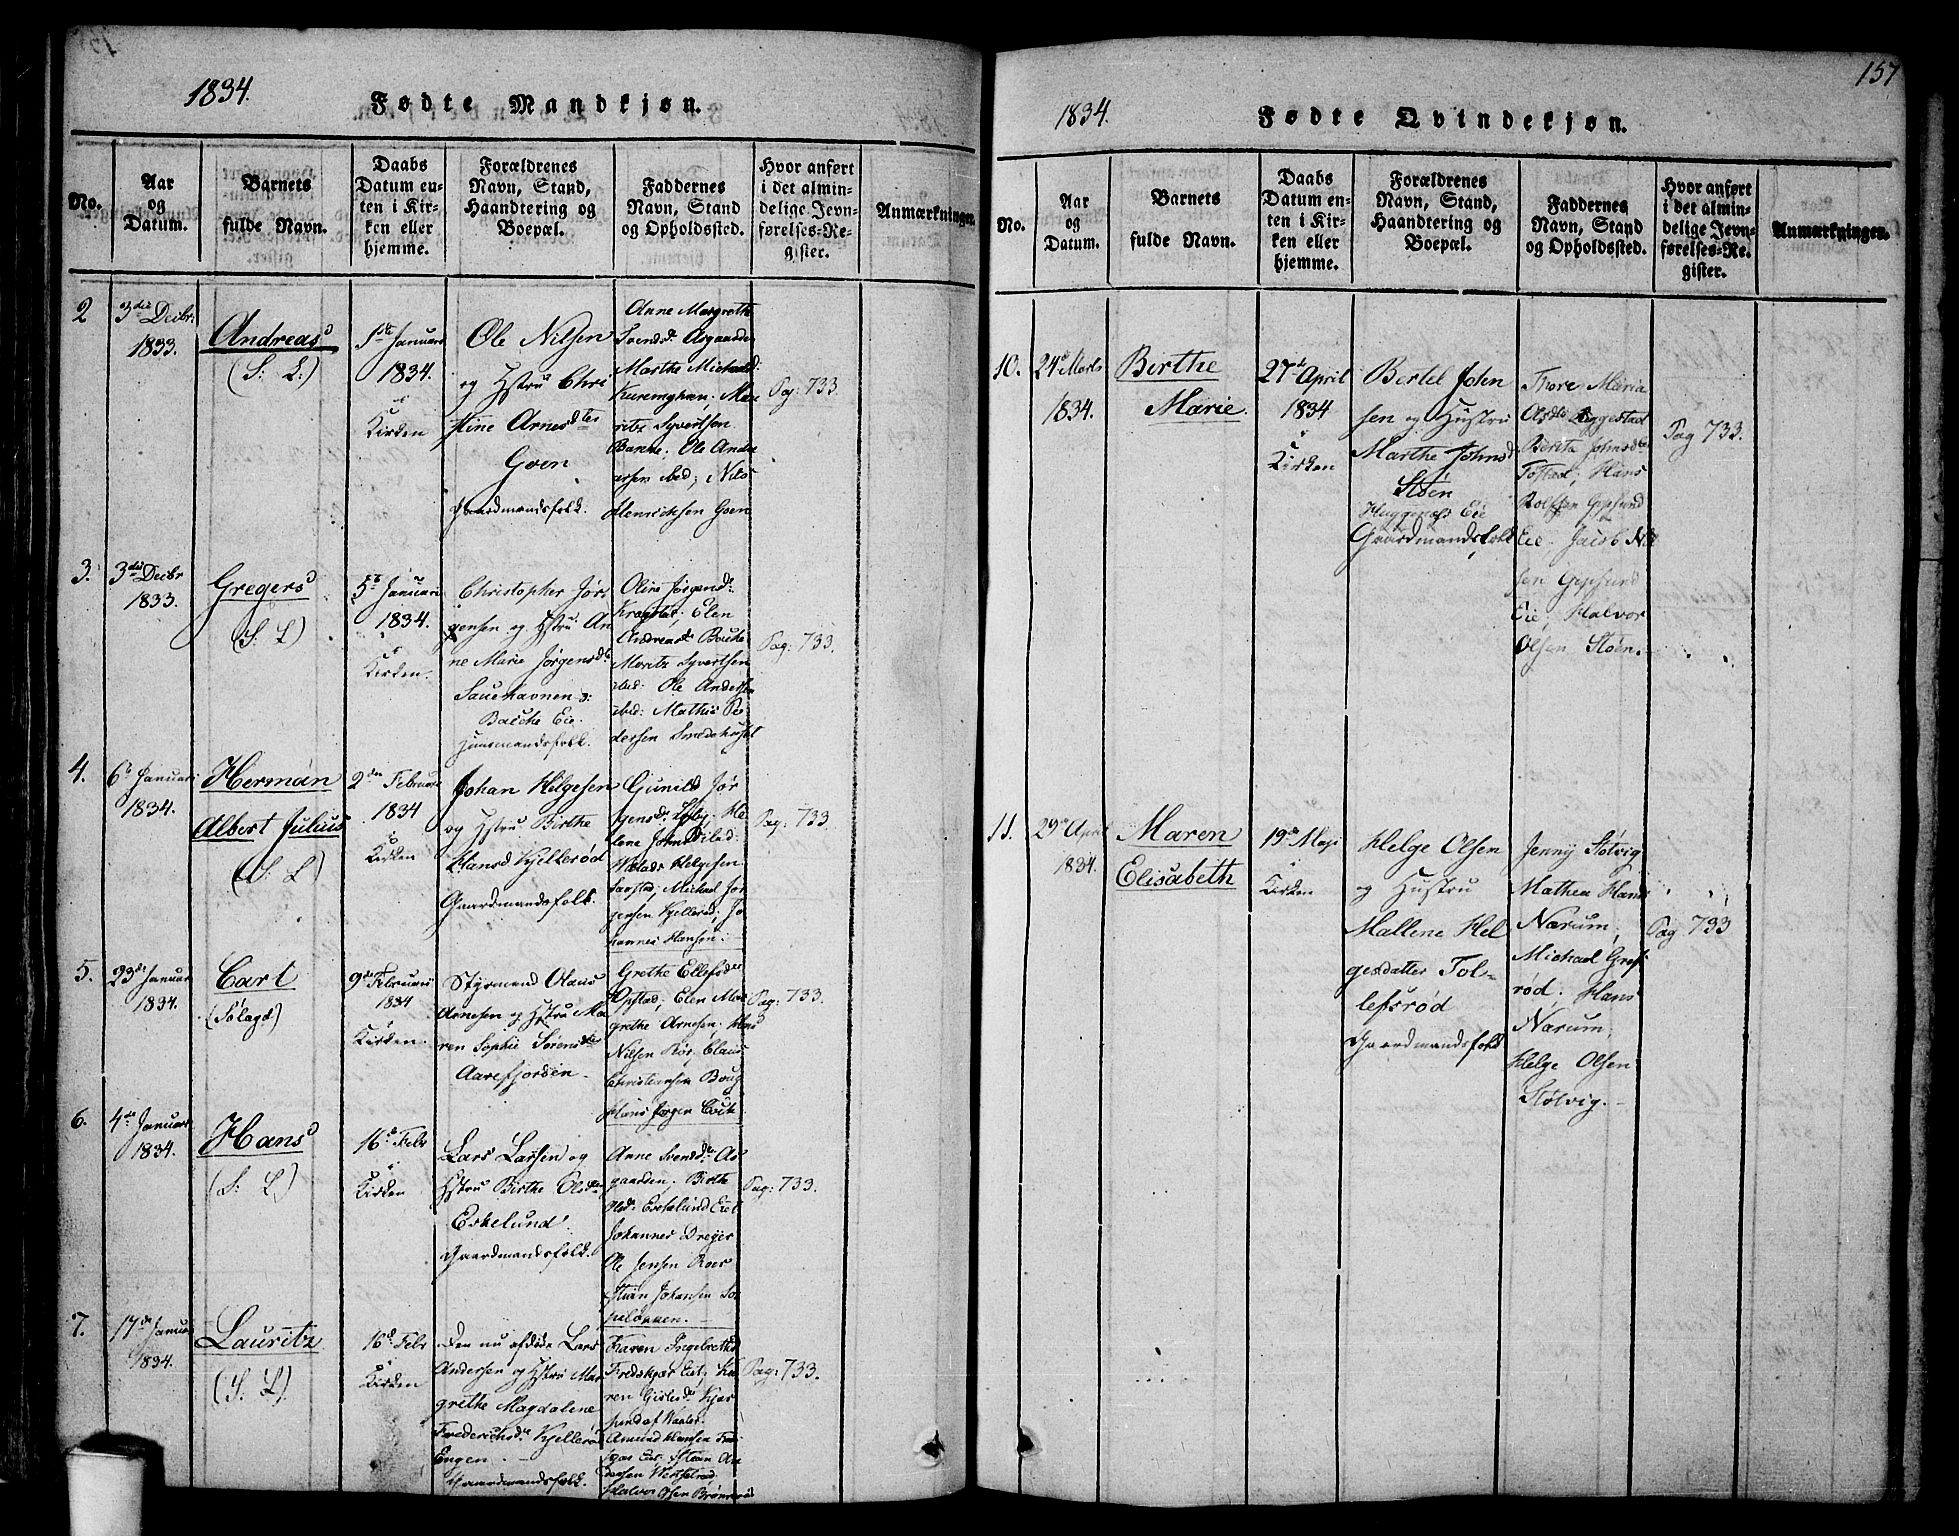 1834.
Fødte Mandkjøn.
No.
Aar
og
Datum.
Barnets
fulde Navn.
Daabs
Datum en-
ten i Kir-
ken eller
hjemme.
Forældrenes
Navn, Stand,
Haandtering og
Boepæl.
Faddernes
Navn, Stand
og Opholdssted.
Hvor anført
i det almin-
delige Jevn-
førelses-Re-
gister.
Anmærkninger.
2
3die Decbr:
1833.
Andreas
(S: L:)
1ste Januari
1834.
i
Kirken
Ole Nilsen
og Hstru Chri
stine Arnesdter
Goen
Gaardmandsfolk.
Anne Margreth
Svensd: Aagaarden
Marthe Michaelsd:
Kureenghan; Mau
ritz Syvertsen
Bakke: Ole Ande
rsen ibid; Nils
Henrichsen Goen
Pag: 733.
3.
3die Decbr
1833.
Gregers
(S: L)
5te Januari
1834.
i
Kirken.
Christopher Jør
gensen og Hstru An
ne Marie Jørgensdt
Sauehavnen
Bakke Eie.
Huusmandsfolk.
Oline Jørgensd:
Elen
Andreasd: Backe
Moritz Syvertsen
ibid: Ole Andersen
ibid: Mathis Pe
dersen Smedehuset
Pag: 733.
4.
6te Januari
1834.
Herman
Albert Julius
(S: L)
2den Februari
1834
i
Kirken
Johan Helgesen
og Hstru Birthe
Hansd Kjellerød
Gaardmandsfolk.
Gunild Jør
gensd: He
lene Johnsd
Helgesen
Michael Jør
gensen Kjellerød; Jo
hannes Hansen:
Pag: 733.
5.
23de Januar
1834.
Carl
(Sølagd)
9de Februari
1834
Kirken.
Styrmand Olaus
Arnesen og Hstru Ma
ren Sophie Sørensdtr
Aarefjorden.
Grethe Ellefsdtr
Opstad; Elen Mar
grethe Arnesen; Hans
Nilsen Rør; Claus
Christiansen Boug
Hans Jørgen Bak
Pag: 733.
6.
4de Januar
1834.
Hans
(S: L)
16de Febr
i
Kirken
Lars Larsen og
Hstru Birthe Olsdtr
Eskelund.
Gaardmandsfolk.
Anne Svensdtr Aa
gaarden; Birthe
Olsd: Eskelund Eie
Johannes Dreyer
Ole Jensen Roer
Stian Johansen
Pag: 733.
7.
17de Januar
1834.
Lauritz
(S. L)
16de Febr
i
Kirken
Den nu afdøde Lars
Andersen og Hstru Mar
grethe Magdalene
Frederichsdtr Kjellerød
Engen.
Gaardmandsfolk.
Karen Ingebrethsd
Fredskjær Eie; Ka
ren Gislesdr Kjær
Amund Hansen
Stian An
dersen
Halvor Olsen Brønnerød
Pag: 733.
157
1834.
Fødte Qvindekjøn.
No.
Aar
og
Datum.
Barnets
fulde Navn.
Daabs
Datum en-
ten i Kir-
ken eller
hjemme.
Forældrenes
Navn, Stand,
Haandtering og
Boepæl.
Faddernes
Navn, Stand
og Opholdssted.
Hvor anført
i det almin-
delige Jevn-
førelses-Re-
gister.
Anmærkninger.
10.
24de Marts
1834.
Birthe
Marie.
27de April
1834
i
Kirken
Bertel John
sen og Hustru
Marthe Johnsd
Støen
Huggenæs Eie
Gaardmandsfolk
Thore Maria
Olsdtr Eggestad
Berita Johnsdtr
Tofstad; Hans
Rolfsen Gipsund
Eie; Jacob Nil
sen Gipsund
Eie; Halvor
Olsen Støen.
Pag 733.
11.
29de April
1834.
Maren
Elisabeth
19de Maji
i
Kirken
Helge Olsen
og Hustru
Mallene Hel
gesdatter Tol-
lefsrød
Gaardmandsfolk
Jenny Støtvig
Mathea Hans
Narum;
Michael Gref-
rød; Hans
Narum;
Helge Olsen
Støtvig.
Pag 733